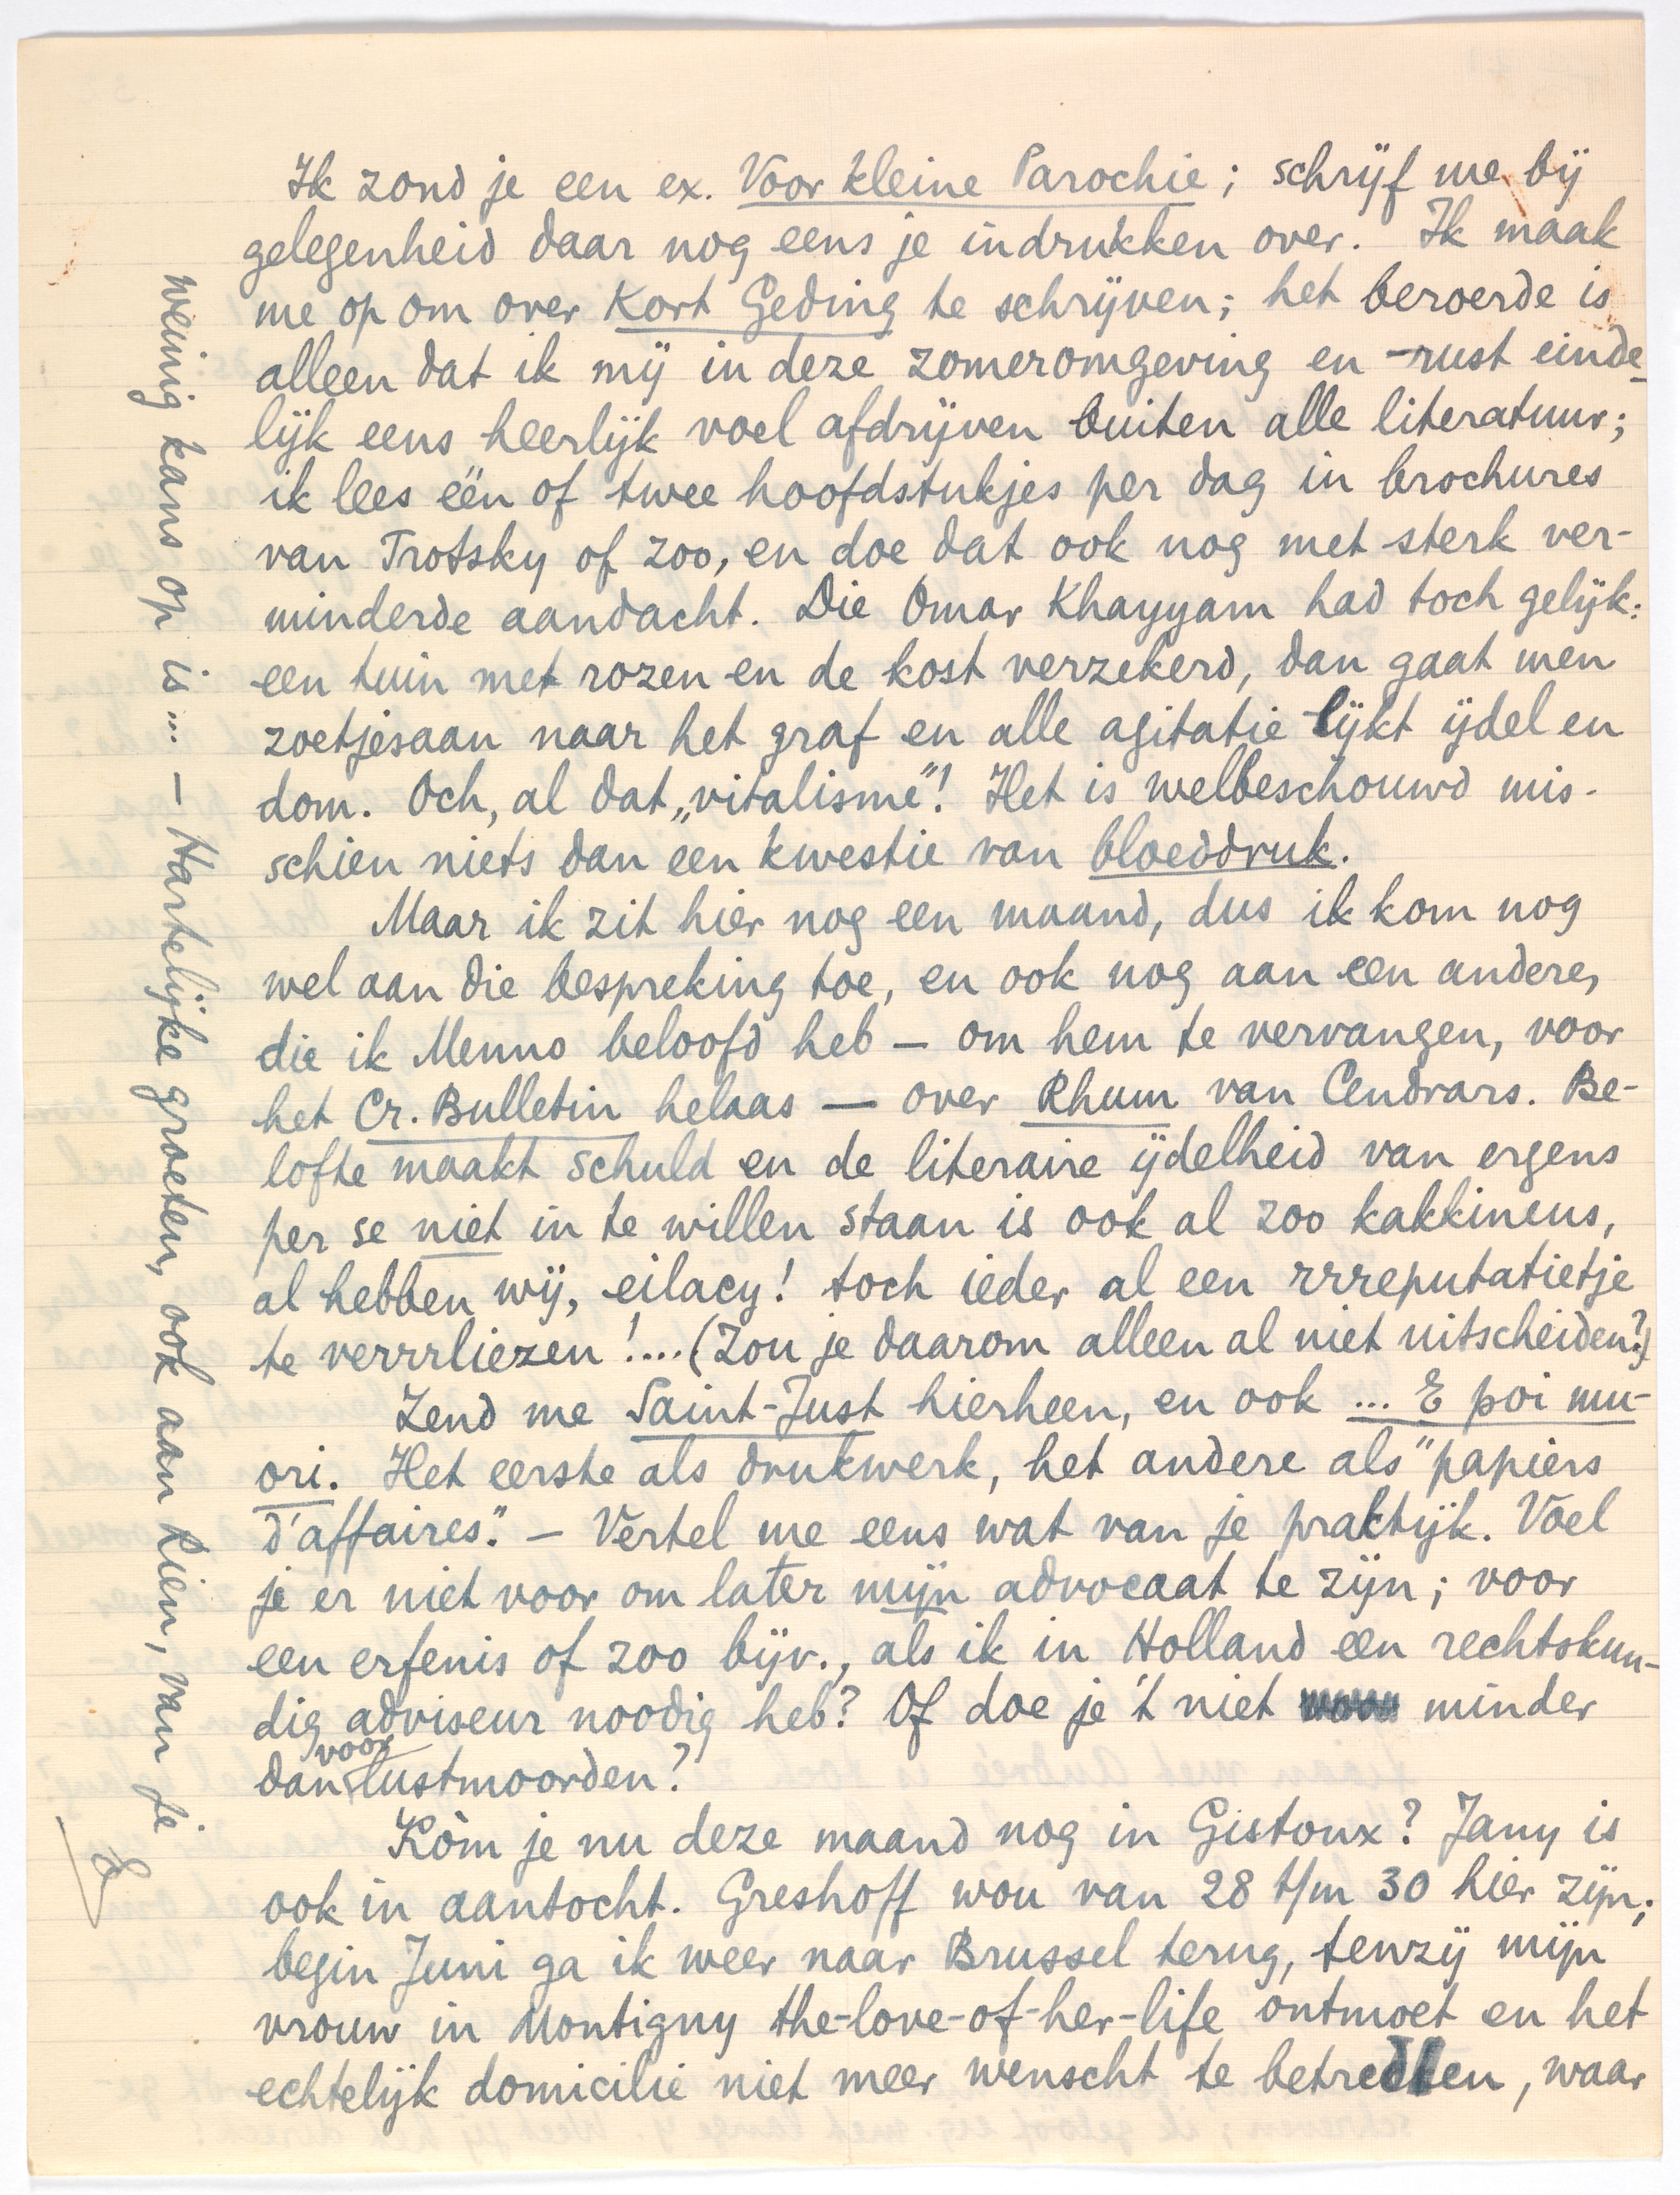 Ik zond je een ex. Voor kleine Parochie; schrijf me bij
gelegenheid daar nog eens je indrukken over. Ik maak
me op om over Kort Geding te schrijven; het beroerde is
alleen dat ik mij in deze zomeromgeving en -rust einde-
lijk eens heerlijk voel afdrijven buiten alle literatuur;
ik lees één of twee hoofdstukjes per dag in brochures
van Trotsky of zoo, en doe dat ook nog met sterk ver-
minderde aandacht. Die Omar Khayyam had toch gelijk:
een tuin met rozen en de kost verzekerd, dan gaat men
zoetjesaan naar het graf en alle agitatie lijkt ijdel en
dom. Och, al dat „vitalisme"! Het is welbeschouwd mis-
schien niets dan een kwestie van bloeddruk.
Maar ik zit hier nog een maand, dus ik kom nog
wel aan die bespreking toe, en ook nog aan een andere,
die ik Menno beloofd heb — om hem te vervangen, voor
het Cr. Bulletin helaas — over Rhum van Cendrars. Be-
lofte maakt schuld en de literaire ijdelheid van ergens
per se niet in te willen staan is ook al zoo kakkineus,
al hebben wij, eilacy! toch ieder al een rrreputatietje
te verrrliezen!.... (Zou je daarom alleen al niet uitscheiden?)
Zend me Saint-Just hierheen, en ook ... E poi mu-
ori. Het eerste als drukwerk, het andere als "papiers
d'affaires". — Vertel me eens wat van je praktijk. Voel
je er niet voor om later mijn advocaat te zijn; voor
een erfenis of zoo bijv., als ik in Holland een rechtskun-
dig adviseur noodig heb? Of doe je 't niet minder
dan voor lustmoorden?
Kòm je nu deze maand nog in Gistoux? Jany is
ook in aantocht. Greshoff wou van 28 t/m 30 hier zijn;
begin Juni ga ik weer naar Brussel terug, tenzij mijn
vrouw in Montigny the-love-of-her-life ontmoet en het
echtelijk domicilie niet meer wenscht te betreden, waar
weinig kans op is... — Hartelijke groeten, ook aan Lien, van je
E